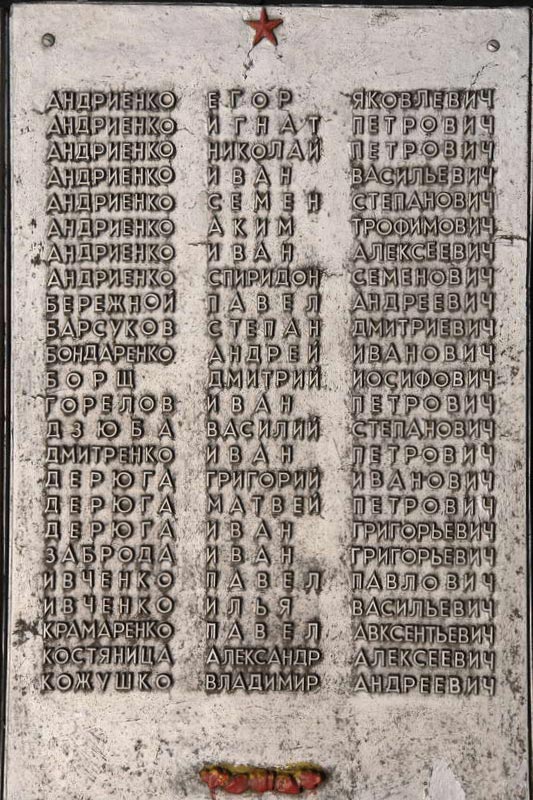 АНДРИЕНКО ЕГОР ЯКОВЛЕВИЧ
АНДРИЕНКО ИГНАТ ПЕТРОВИЧ
АНДРИЕНКО НИКОЛАЙ ПЕТРОВИЧ
АНДРИЕНКО ИВАН ВАСИЛЬЕВИЧ
АНДРИЕНКО СЕМЕН СТЕПАНОВИЧ
АНДРИЕНКО АКИМ ТРОФИМОВИЧ
АНДРИЕНКО ИВАН АЛЕКСЕЕВИЧ
АНДРИЕНКО СПИРИДОН СЕМЕНОВИЧ
БЕРЕЖНОЙ ПАВЕЛ АНДРЕЕВИЧ
БАРСУКОВ СТЕПАН ДМИТРИЕВИЧ
БОНДАРЕНКО АНДРЕЙ ИВАНОВИЧ
БОРЩ ДМИТРИЙ ИОСИФОВИЧ
ГОРЕЛОВ ИВАН ПЕТРОВИЧ
ДЗЮБА ВАСИЛИЙ СТЕПАНОВИЧ
ДМИТРЕНКО ИВАН ПЕТРОВИЧ
ДЕРЮГА ГРИГОРИЙ ИВАНОВИЧ
ДЕРЮГА МАТВЕЙ ПЕТРОВИЧ
ДЕРЮГА ИВАН ГРИГОРЬЕВИЧ
ЗАБРОДА ИВАН ГРИГОРЬЕВИЧ
ИВЧЕНКО ПАВЕЛ ПАВЛОВИЧ
ИВЧЕНКО ИЛЬЯ ВАСИЛЬЕВИЧ
КРАМАРЕНКО ПАВЕЛ АВКСЕНТЬЕВИЧ
КОСТЯНИЦА АЛЕКСАНДР АЛЕКСЕЕВИЧ
КОЖУШКО ВЛАДИМИР АНДРЕЕВИЧ